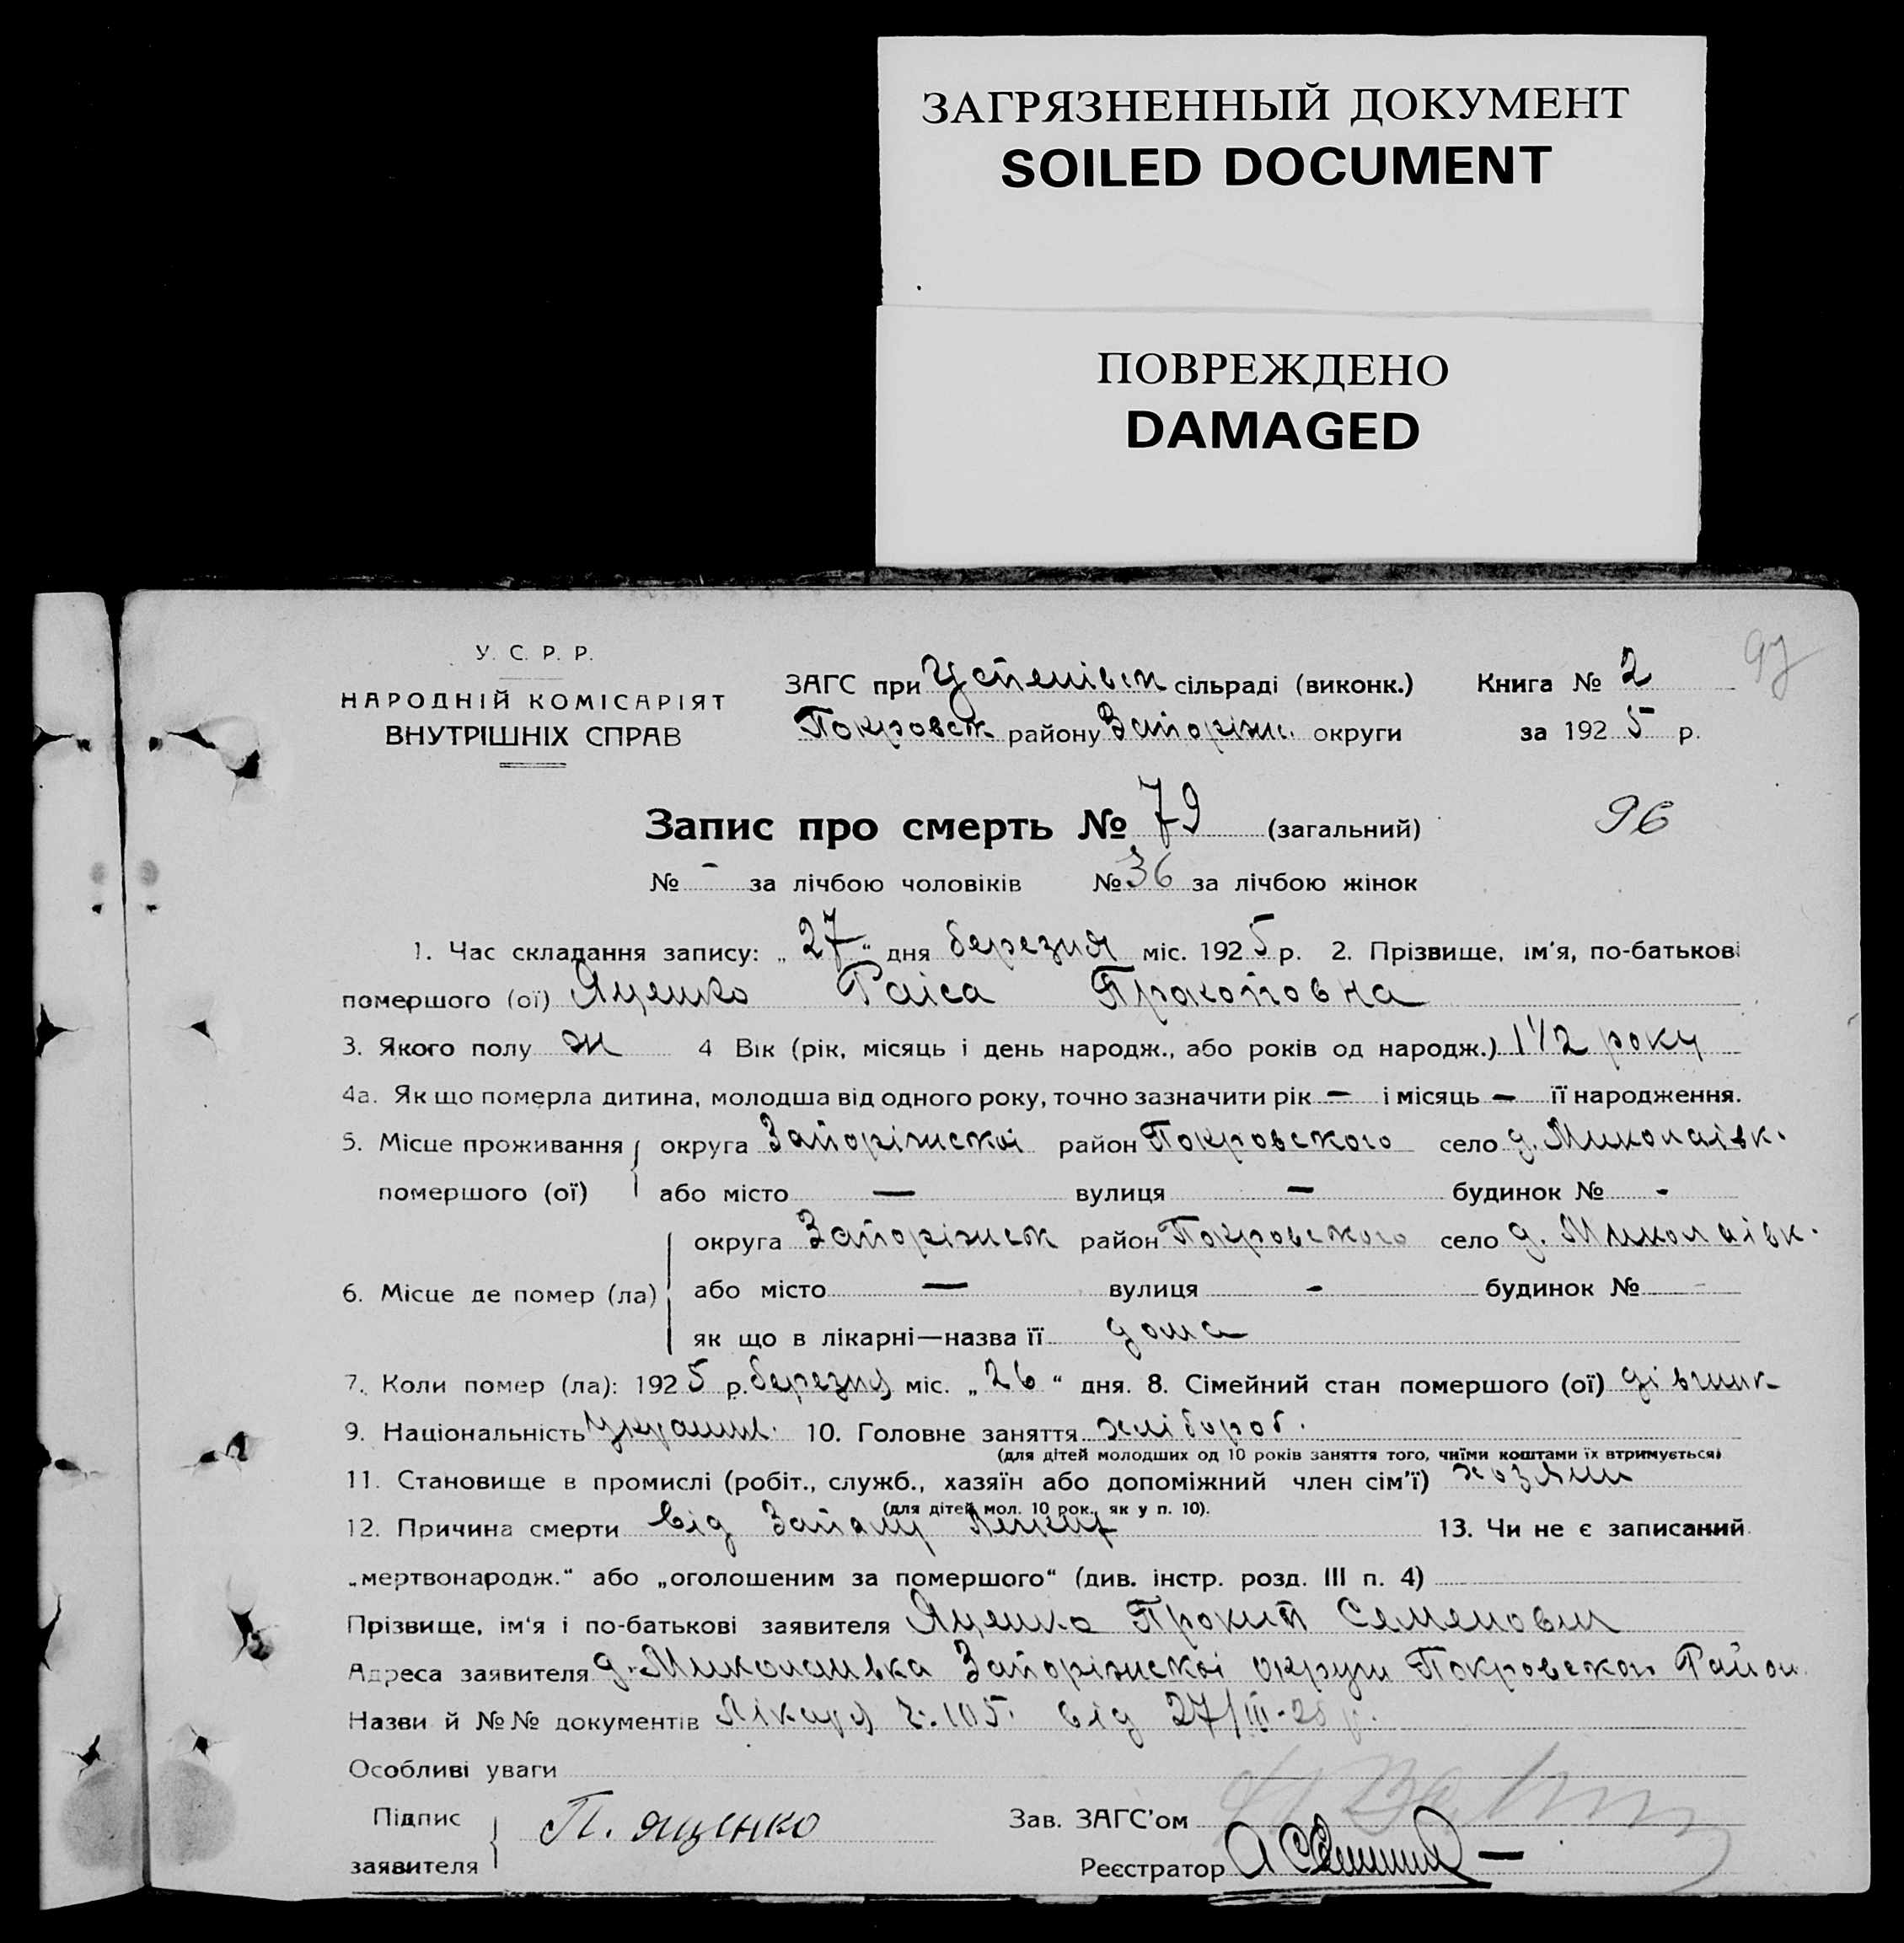 ЗАГРЯЗНЕННЫЙ ДОКУМЕНТ
SOILED DOCUMENT
ПОВРЕЖДЕНО
DAMAGED
97
У. С. Р. Р.
НАРОДНІЙ КОМІСАРІЯТ
ВНУТРІШНІХ СПРАВ
ЗАГС при Успенівск сільраді (виконк.) Книга № 2
Покровск району Запоріжс. округи за 1925 р.
Запис про смерть № 79 (загальний) 96
№ - за лічбою чоловіків № 36 за лічбою жінок
1. Час складання запису: „27“ дня березня міс. 1925 р. 2. Прізвище, ім'я, по-батькові
помершого (ої) Яценко Раіса Прокоповна
3. Якого полу ж 4 Вік (рік, місяць і день народж., або років од народж.) 1 1/2 року
4а. Як що померла дитина, молодша від одного року, точно зазначити рік — і місяць — її народження.
5. Місце проживання помершого (ої) округа Запоріжскоі район Покровского село д. Миколаівк.
або місто — вулиця — будинок № -
6. Місце де помер (ла) округа Запоріжск район Покровского село д. Миколаівк.
або місто — вулиця - будинок № -
як що в лікарні—назва її дома
7. Коли помер (ла): 1925 р. березня міс. „26“ дня. 8. Сімейний стан помершого (ої) дівчинк
9. Національність Украин. 10. Головне заняття хлібороб.
(для дітей молодших од 10 років заняття того, чиїми коштами їх втримується)
11. Становище в промислі (робіт., служб., хазяїн або допоміжний член сім'ї) хозяин
(для дітей мол. 10 рок., як у п. 10).
12. Причина смерти від Запалу Легких 13. Чи не є записаний
„мертвонародж.“ або „оголошеним за помершого“ (див. інстр. розд. III п. 4)
Прізвище, ім'я і по-батькові заявителя Яценко Прокип Семенович
Адреса заявителя д. Миколаивка Запоріжскоі округи Покровского Район
Назви й №№ документів Лікаря ч. 105 від 27/III-25 р.
Особливі уваги
Підпис заявителя П. яценко Зав. ЗАГС'ом
Реєстратор